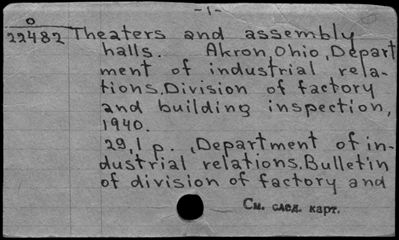 -1-
O
22482 Theaters and assembly
halls. Akron, Ohio, Depart
ment of industrial rela-
tions. Division of factory
and building inspection,
1940.
29,1 p. , Department of in-
dustrial relations. Bulletin
of division of factory and
См. след. карт.